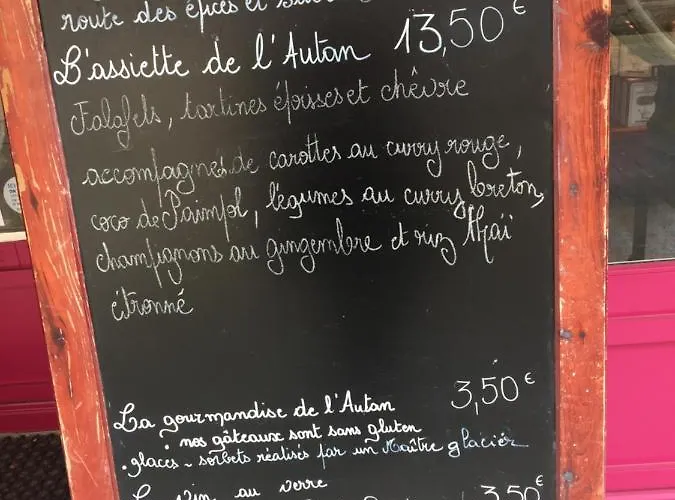 route des épices et
L'assiette de l'Autan 13,50 €
Falafels, tartines époisses et chèvre
accompagnés de carottes au curry rouge,
coco de Paimpol, légumes au curry breton,
champignons au gingembre et riz Thaï
citronné
La gourmandise de l'Autan 3,50 €
• nos gâteaux sont sans gluten
• glaces ~ sorbets réalisés par un Maître glacier
Le vin au verre
3,50 €